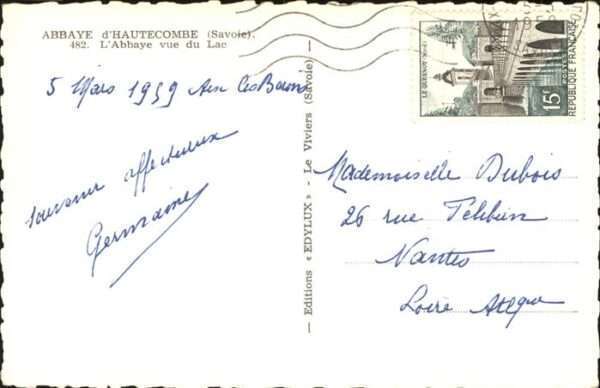 ABBAYE d'HAUTECOMBE (Savoie).
482. L'Abbaye vue du Lac
5 Mars 1959 Aix les Bains
souvenir affectueux
Germaine
— Editions « EDYLUX » - Le Viviers (Savoie) —
LE QUESNOY (Nord)
15F
POSTES
REPUBLIQUE FRANÇAISE
Mademoiselle Dubois
26 rue Félibien
Nantes
Loire Atlque